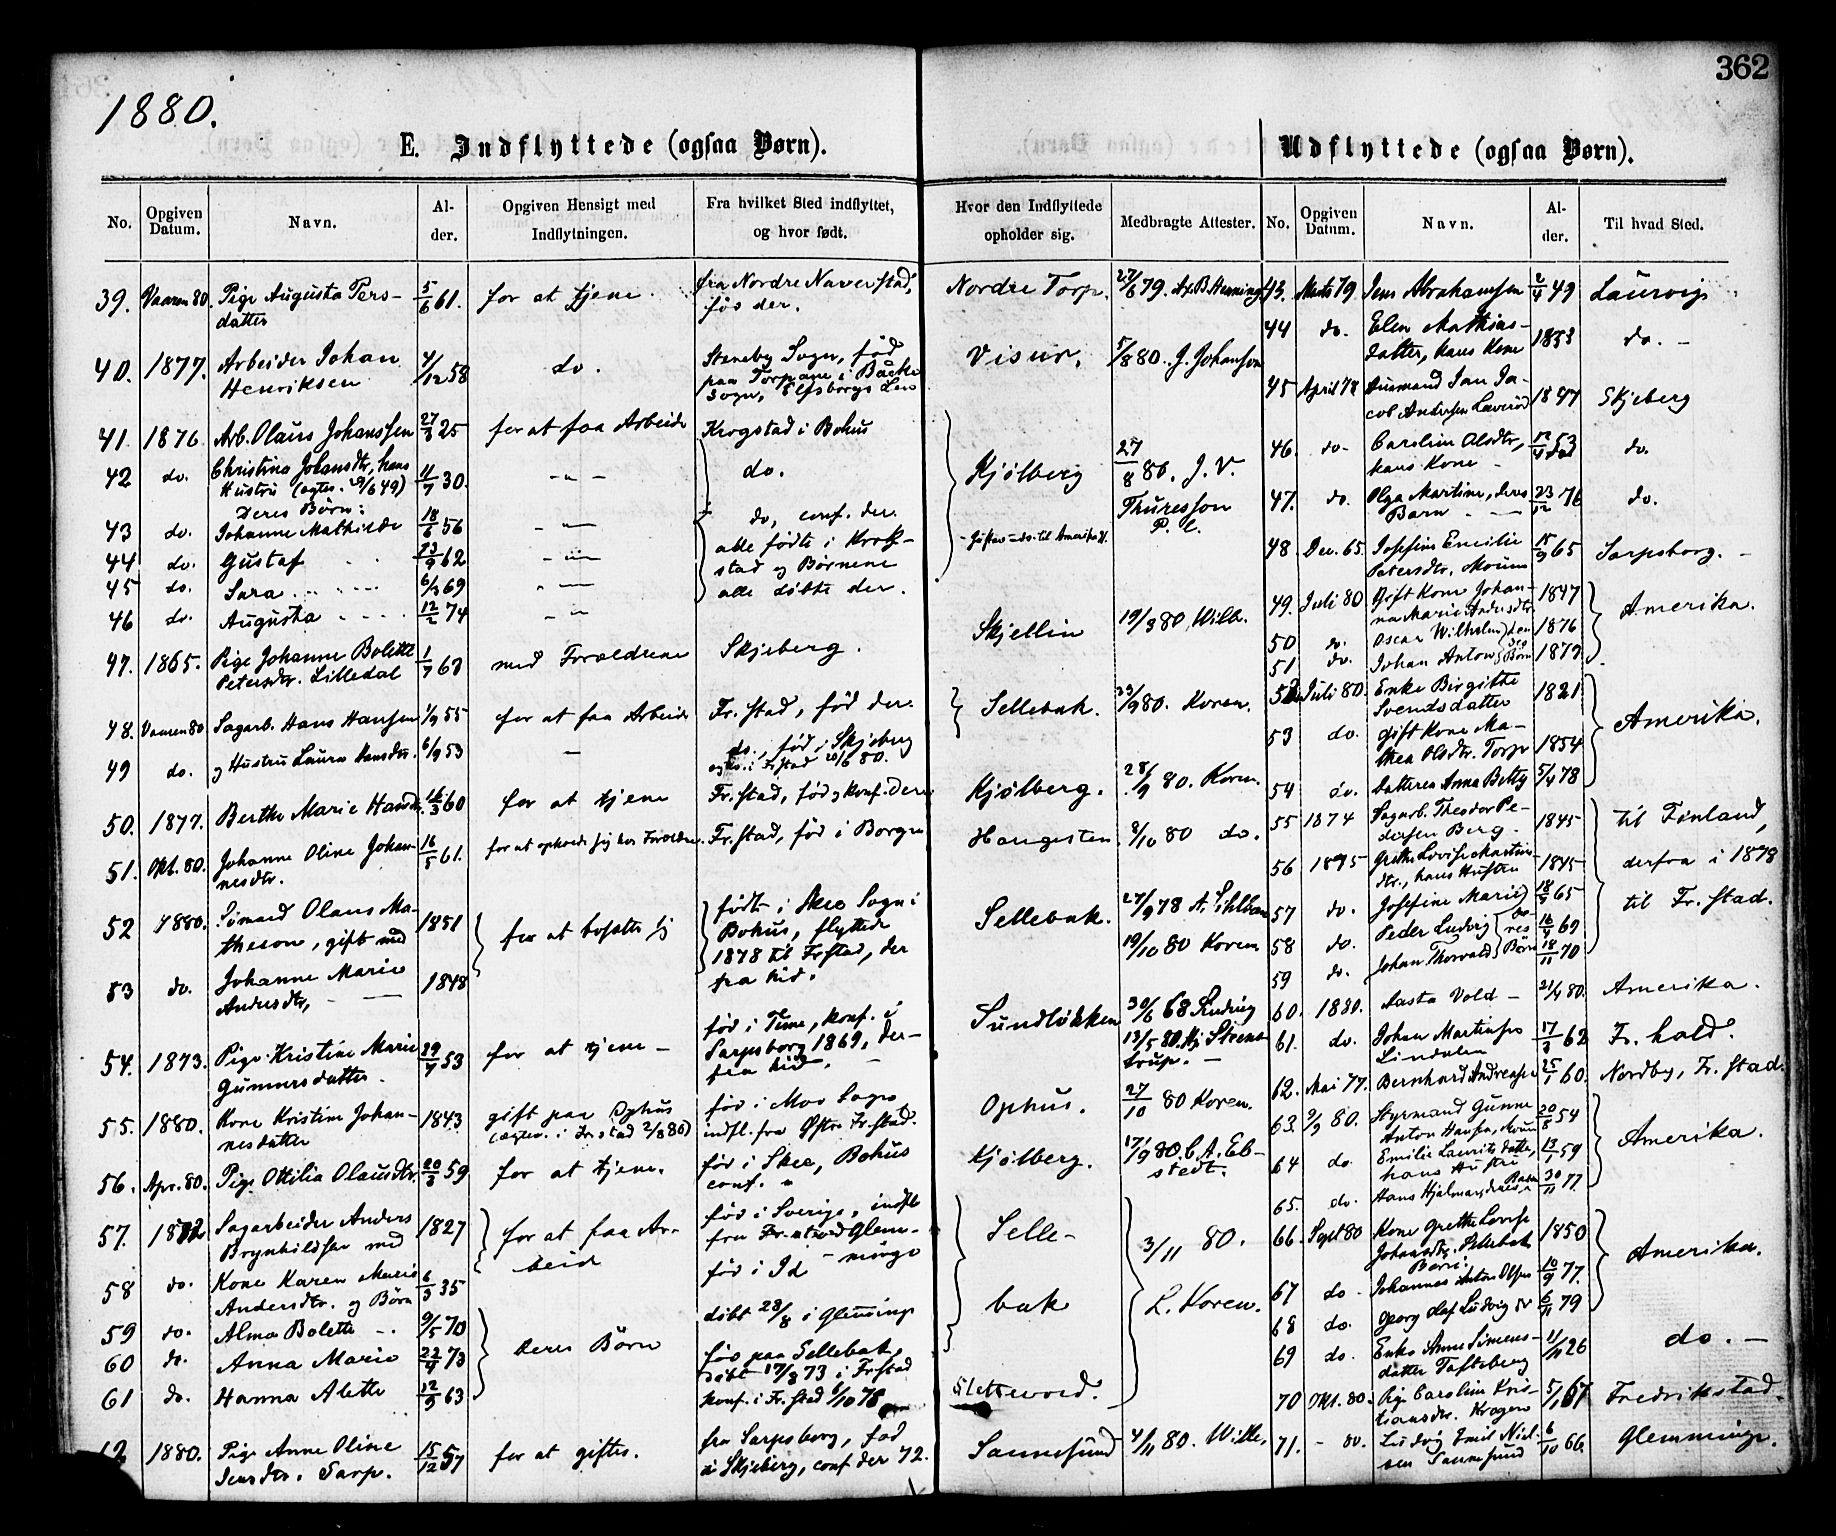 362
1880.
E. Indflyttede (ogsaa Børn).
Udflyttede (ogsaa Børn).
No. Opgiven Datum. Navn. Alder. Opgiven Hensigt med Indflytningen. Fra hvilket Sted indflyttet, og hvor født. Hvor den Indflyttede opholder sig. Medbragte Attester.
39. Vaaren 80. Pige Augusta Persdatter 5/6 61. for at tjene. fra Nordre Naverstad, fød der. Nordre Torp. 27/6 79.
40. 1877. Arbeider Johan Henriksen 4/12 58 do. Steneby Sogn, fød paa Torpane i Bäcke Sogn, Elfsborgs Län Visur. 5/8 80. J. Johanson
41. 1876 Arb. Olaus Johanssen 27/3 25 for at faa Arbeide Krogstad i Bohus
42 do. Christina Johansdtr, hans Hustru (egtev. 49) 11/7 30. - " - do. Kjølberg 27/8 80. J. V. Thuresson P. C.
Deres Børn:
43 do. Johanne Mathilde 18/6 56 - " - do, conf. der.
44 do. Gustaf 23/9 62 - " - alle fødte i Krokstad og Børnene alle døbte der.
45 do. Sara 6/3 69 - " -
46 do. Augusta 12/2 74 - " -
47. 1865. Pige Johanne Bolette Petersdtr. Lilledal 1/7 63 med Forældrene Skjeberg. Skjellin 19/8 80. Wille.
48. Vaaren 80 Sagarb. Hans Hansen 1/9 55 for at faa Arbeide Fr.stad, fød der. Sellebak. 23/9 80. Koren.
49 do. og Hustru Laura Hansdtr. 6/9 53 - do., fød i Skjeberg egtev. i Fr.stad 20/6 80.
50. 1877. Berthe Marie Hansdtr. 16/3 60 for at tjene Fr.stad, fød og konf. der. Kjølberg. 28/9 80. Koren.
51. Okt. 80. Johanne Oline Johannesdtr. 16/5 61. for at opholde sig hos Forældrene. Fr.stad, fød i Borge Haugesten 8/10 80 do.
52 1880. Sømand Olaus Matheson, gift med 1851 for at bosætte sig født i Skee Sogn i Bohus, flyttede 1878 til Fr.stad, derfra hid. Sellebak. 27/9 78
53 do. Johanne Marie Andersdtr, 1848 19/10 80 Koren
54. 1873. Pige Kristine Marie Gunnersdatter. 29/7 53 for at tjene - fød i Tune, konf. i Sarpsborg 1869, derfra hid. Sundløkken 30/6 68 13/5 80.
55. 1880. Kone Kristine Johannesdatter 1843 gift paa Ophus (egtev. i Fr.stad 2/8 80) fød i Moss Sogn indfl. fra Østre Fr.stad. Ophus. 27/10 80 Koren.
56. Apr. 80. Pige Ottilia Olausdtr. 20/3 59 for at tjene. fød i Skee, Bohus conf. " Kjølberg. 17/9 80. C. A. Ebstedt.
57. 1872 Sagarbeider Anders Brynhildsen med 1827 for at faa Arbeid fød i Sverige, indfl. fra Fr.stad Glemminge Sellebak 3/11 80. L. Koren.
58 do. Kone Karen Marie Andersdtr. og Børn 6/3 35 fød i Id
59 do. Alma Bolette 9/5 70 Deres Børn døbt 28/8 i Glemminge
60 do. Anna Marie 22/4 73 fød paa Sellebak, døbt 17/8 73 i Fr.stad
61 do. Hanna Alette 12/9 63 konf. i Fr.stad 6/10 78 Slettevold.
62 1880. Pige Anne Oline Jensdtr. Torp. 15/12 57 for at giftes. fra Sarpsborg, fød i Skjeberg, conf. der 72. Sannesund 4/11 80. Wille,
No. Opgiven Datum. Navn. Alder. Til hvad Sted.
43. Marts 79 Jens Abrahamsen 2/4 49 Laurvig
44 do. Elen Mathiasdatter, hans Kone 1853 do. -
45 April 78 Husmand Jan Jacob Andersen 1847 Skjeberg
46. do. Caroline Olsdtr, hans Kone 53 do.
47. do. Olga Martine, deres Barn 23/12 76 do.
48 Dec. 65. Josefine Emilie Petersdtr. Moum 18/9 65 Sarpsborg. -
49. Juli 80 Gift Kone Johanna Marie Andersdtr 1847 Amerika.
50 do. Oscar Wilhelm 1876
51 do. Johan Anton Børn 1879
52 Juli 80. Enke Birgitte Svendsdatter 1821 Amerika.
53 do. gift Kone Mathea Olsdtr. Torp 1854
54 do. Datteren Anna Betty 5/4 78
55 1874 Sagarb. Theodor Pedersen Berg. 1845 til Finland, derfra i 1878 til Fr.stad.
56 1875 Grethe Lovise Martinsdtr., hans Hustru 1845
57 do. Josefine Marie 18/5 65
58 do. Peder Ludvig deres 16/9 69
59 do. Johan Thorvald Børn 18/11 70
60. 1880. Aasta Vold - 21/4 80. Amerika.
61. do. Johan Martinsen Lindalen 17/8 62 Fr.hald.
62. Mai 77. Bernhard Andreasen 25/1 60. Nordby, Fr.stad.
63. 9/9 80. Styrmand Gunne Anton Hansen, Moum 20/8 54 Amerika.
64 do Emilie Lauritsdatter, hans Hustru 13/1 59
65. do. Hans Hjalmar, deres Barn 30/11 77
66. Sept 80 Kone Grethe Lovise Johansdtr. Sellebak 1850 Amerika.
Børn:
67 do. Johannes Anton Olsen 10/9 77.
68 do. Georg Olaf Ludvig do 6/11 79
69 do. Enke Anne Simensdatter Tofteberg 11/11 26 do. -
70 Okt. 80. Pige Caroline Kristiansdtr. Kragerø 5/1 67 Fredrikstad.
71. - 80. Ludvig Emil Nielsen Sannesund 6/10 66 Glemminge.